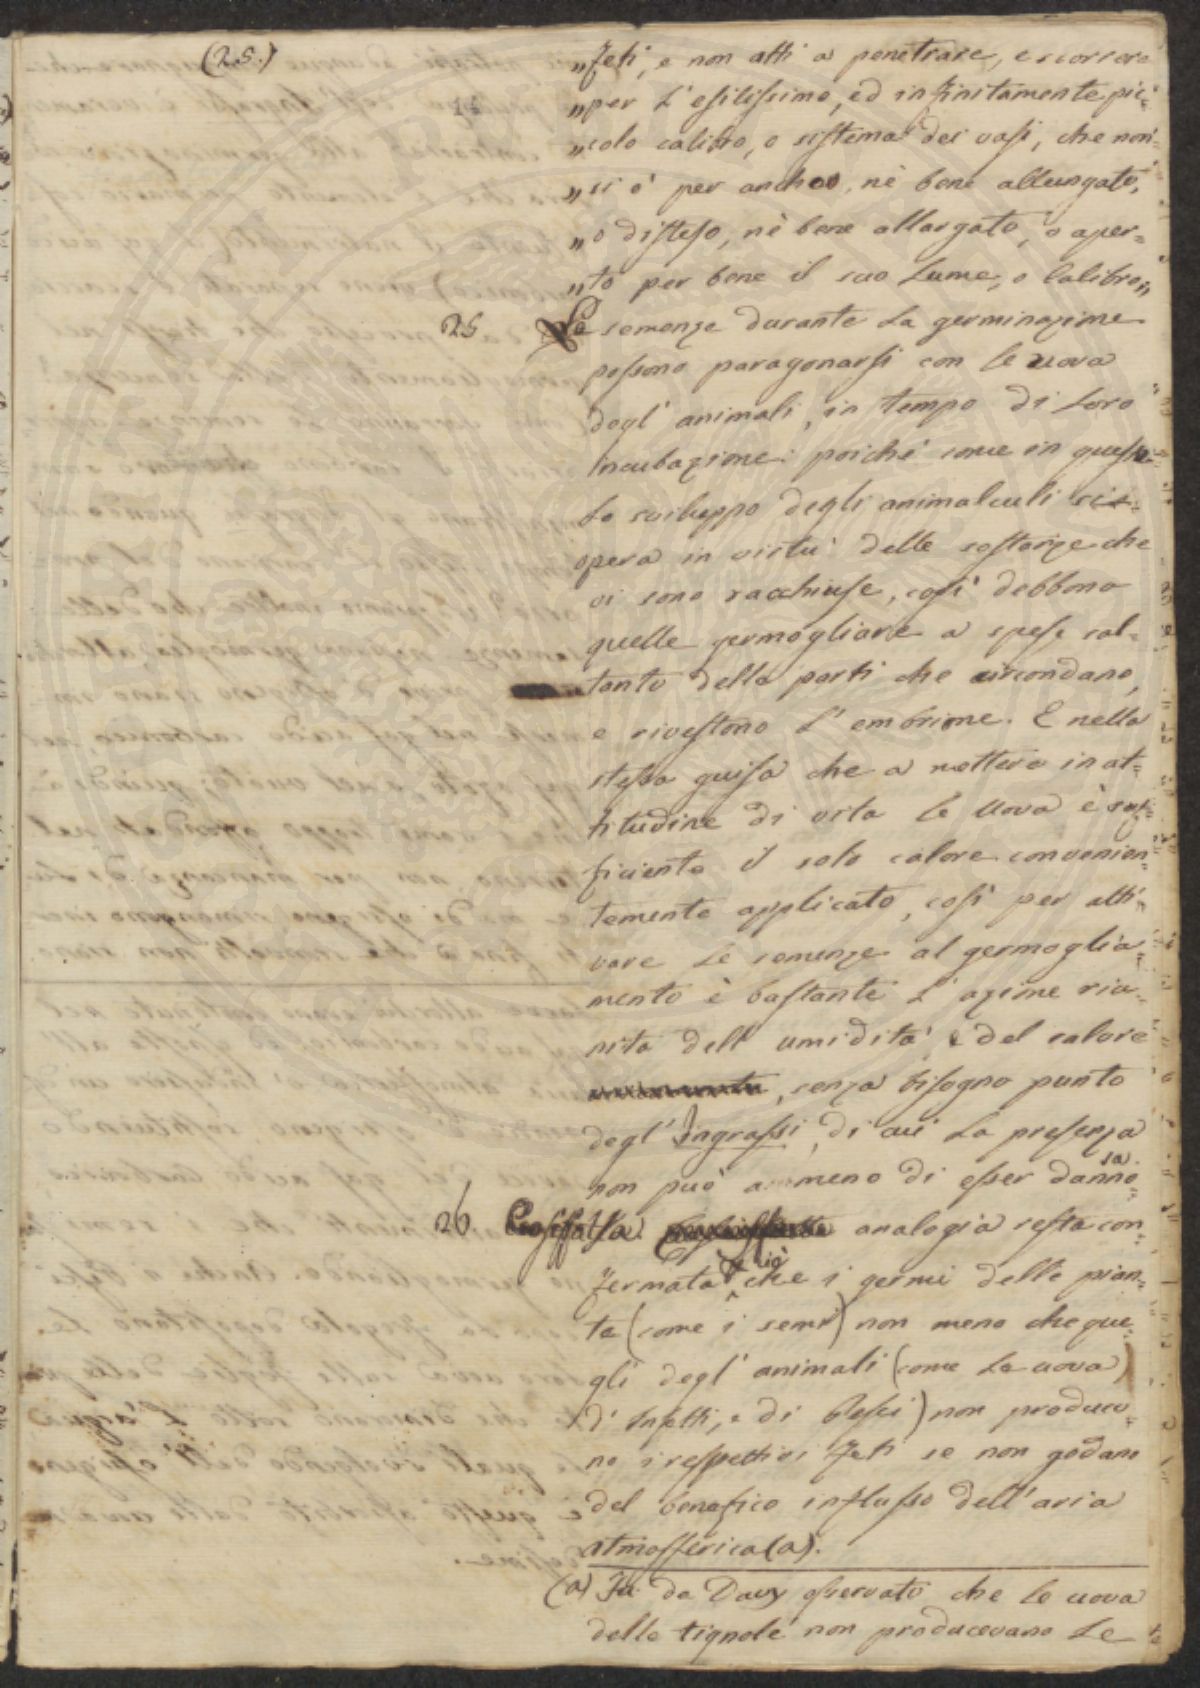 (25.)
„feti, e non atti a penetrare, e scorrere
„per l'esilissimo, ed infinitamente pic=
„colo calibro, o sistema dei vasi, che non
„si è per anche, nè bene allungato,
„o disteso, nè bene allargato, o aper=
„to per bene il suo Lume, o Calibro„
25 Le semenze durante la germinazione
possono paragonarsi con le uova
degl' animali, in tempo di loro
incubazione: poichè come in queste
lo sviluppo degli animalculi si
opera in virtù delle sostanze che
vi sono racchiuse, così debbono
quelle germogliare a spese sol=
tanto delle parti che circondano,
e rivestono l'embrione. E nella
stessa guisa che a mettere in at=
titudine di vita le Uova è suf=
ficiente il solo calore convenien=
temente applicato, così per atti=
vare le semenze al germoglia=
mento è bastante l'azione riu=
nita dell' umidità e del calore
, senza bisogno punto
degl' Ingrassi, di cui la presenza
non può a meno di esser danno=
sa.
26 Cosiffatta analogia resta con=
fermata da ciò che i germi delle pian=
te (come i semi) non meno che que=
gli degl' animali (come le uova
d' Insetti, e di Pesci) non produco=
no i respettivi feti se non godano
del benefico influsso dell'aria
atmosferica (a).
(a) Fu da Davy osservato che le uova
delle tignole non producevano le